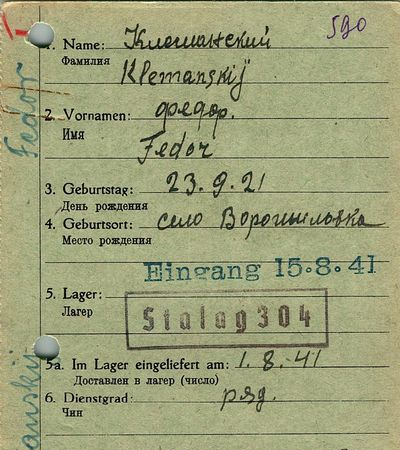 590
1. Name: Клеманский
Фамилия
Klemanskij
2. Vornamen: Федор.
Имя
Fedor
3. Geburtstag: 23.9.21
День рождения
4. Geburtsort: село Ворошиловка
Место рождения
Eingang 15.8.41
5. Lager:
Лагер
Stalag 304
5a. Im Lager eingeliefert am: 1.8.41
Доставлен в лагер (число)
6. Dienstgrad: ряд.
Чин
Fedor
anskij